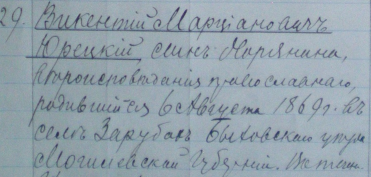 29. Викентій Марціановичъ
Юрецкій, сынъ Маріана,
вѣроисповѣданія православнаго,
родившійся 6 Августа 1869 г. въ
селѣ Зарубахъ Быховскаго уѣзда
Могилевской Губерніи. Въ